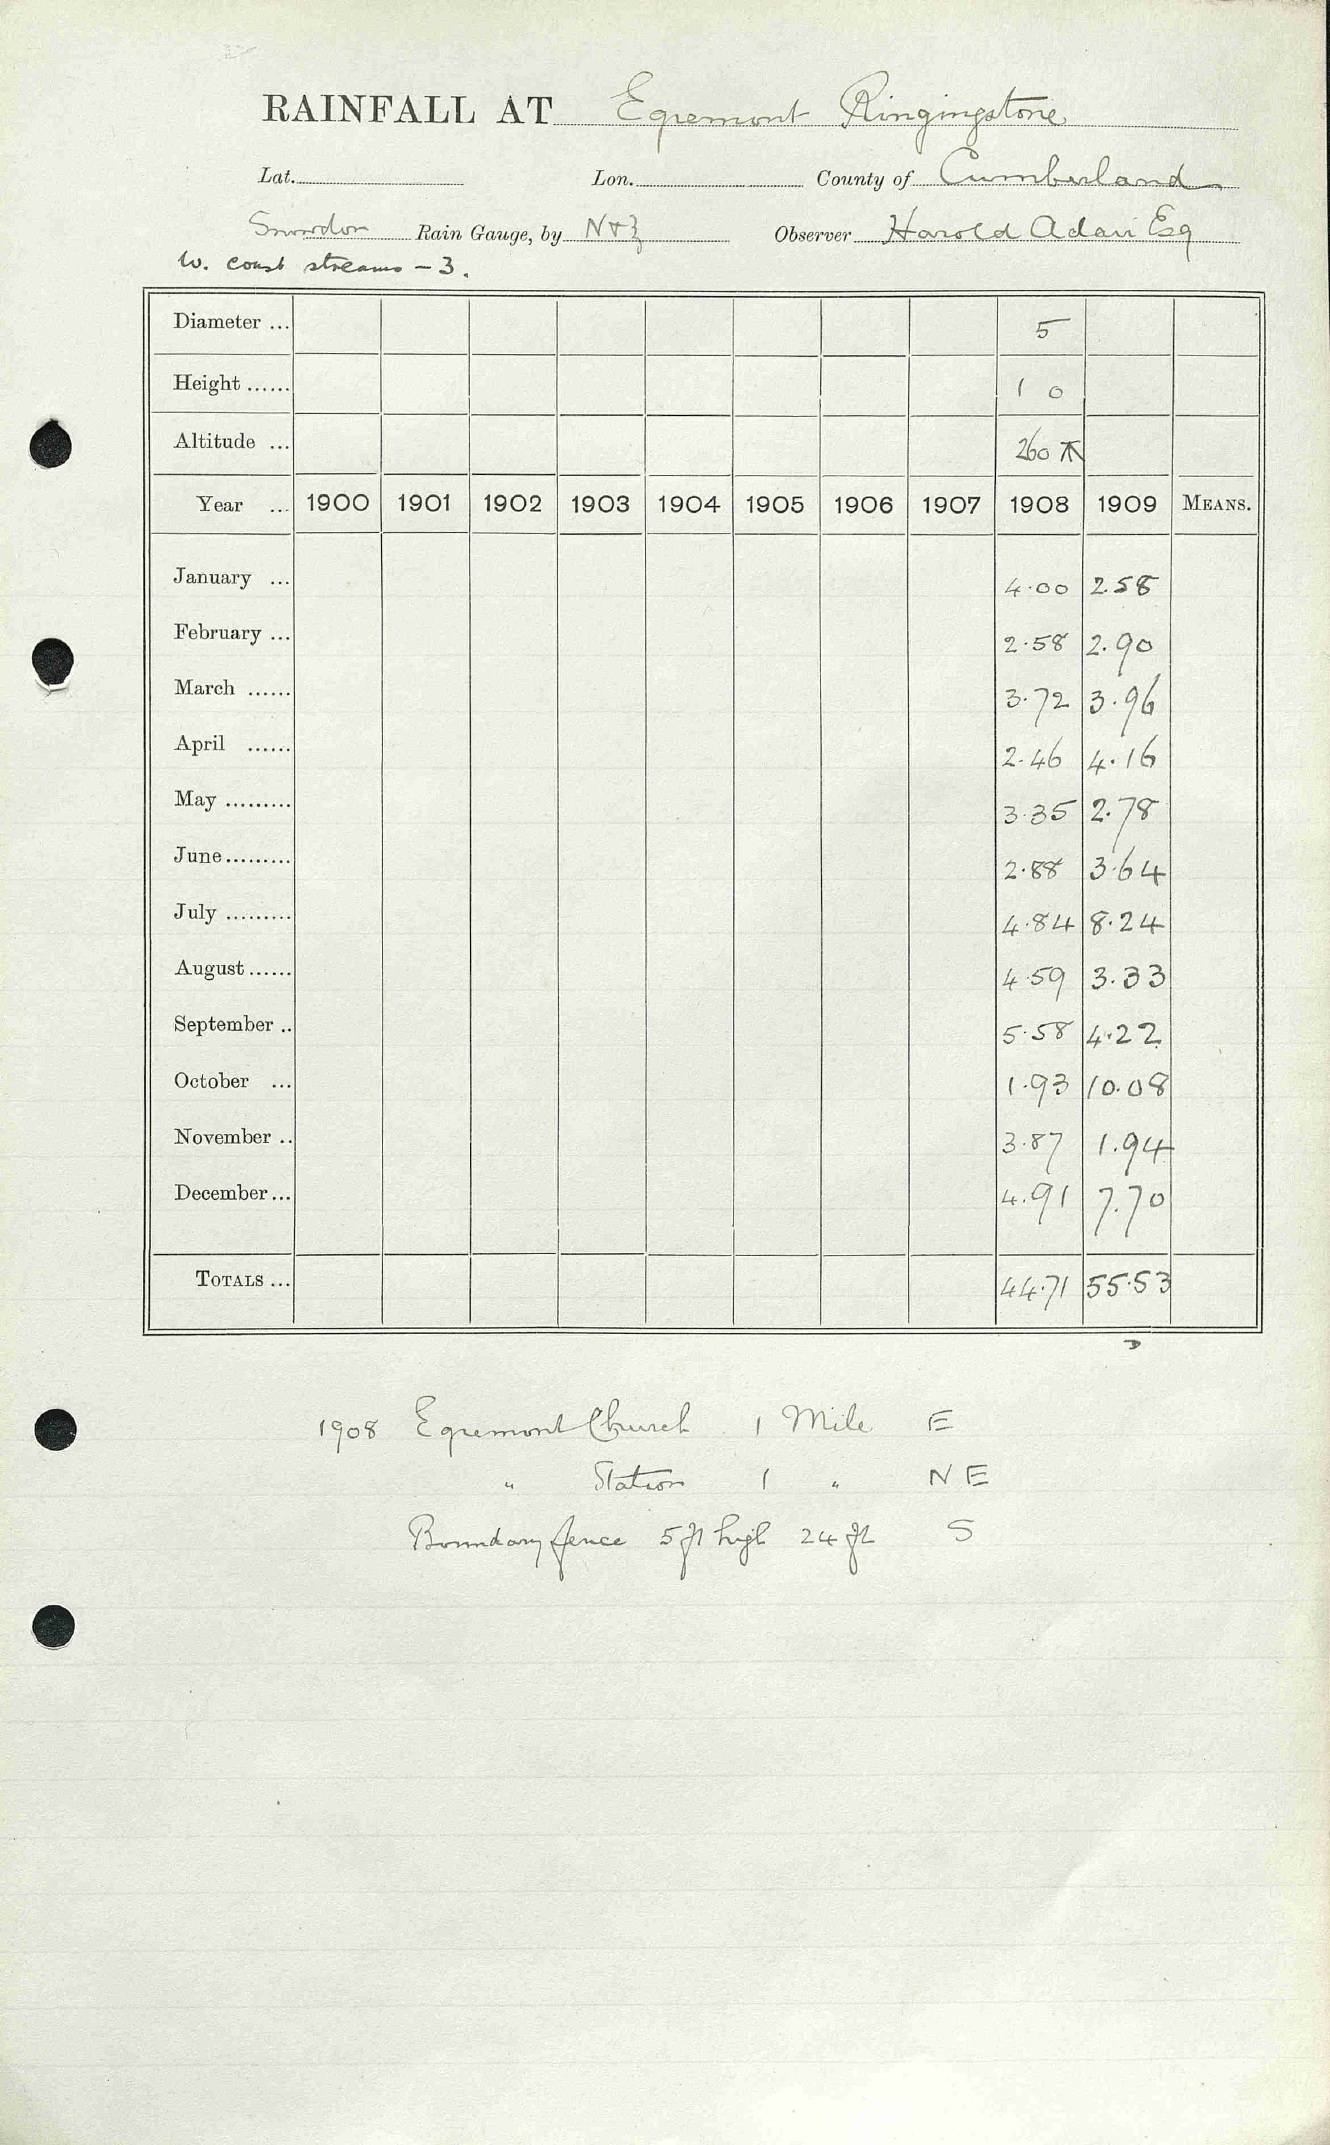 RAINFALL AT Egremont Ringingstone
Lat. Lon. County of Cumberland
Snowdon Rain Gauge, by N+Z Observer Harold Adair Esq
W. coast streams - 3.
Diameter ... 5
Height ...... 1 0
Altitude ... 260
Year ... 1900 1901 1902 1903 1904 1905 1906 1907 1908 1909 MEANS.
January ... 4.00 2.58
February ... 2.58 2.90
March ...... 3.72 3.96
April ...... 2.46 4.16
May ......... 3.35 2.78
June......... 2.88 3.64
July ......... 4.84 8.24
August ...... 4.59 3.33
September .. 5.58 4.22
October ... 1.93 10.08
November .. 3.87 1.94
December ... 4.91 7.70
TOTALS ... 44.71 55.53
1908 Egremont Church 1 Mile E
" Station 1 " NE
Boundary fence 5 ft high 24 ft S